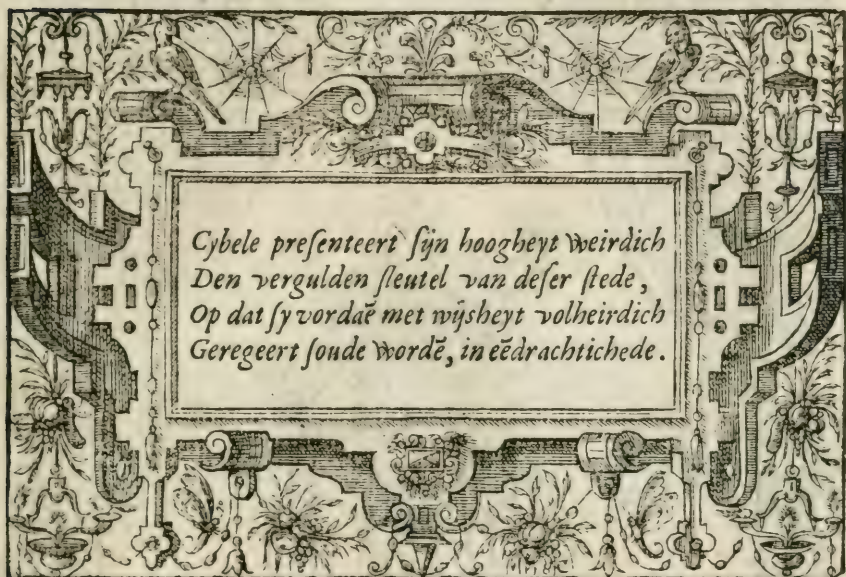 Cybele preſenteert ſijn hoogheyt weirdich
Den vergulden ſleutel van deſer ſtede,
Op dat ſy vordaē met wijsheyt volheirdich
Geregeert ſoude wordē, in eēdrachtichede.